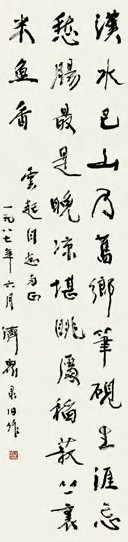 漢水巴山乃舊鄉筆硯生涯忘
愁腸最是晚涼堪眺處稻竹裏
米魚香
雲同志正
一九八七年六月濟眾录旧作